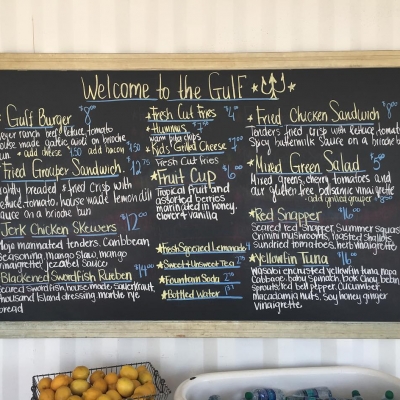 Welcome to the Gulf
Gulf Burger $8.00
ranch beef, lettuce, tomato
house made garlic aioli on brioche
bun + add cheese 1.50 add bacon 1.50
Fried Grouper Sandwich $12.75
lightly breaded & fried crisp with
lettuce, tomato, house made lemon dill
sauce on a brioche bun
Jerk Chicken Skewers $12.00
Mojo marinated tenders, Caribbean
seasoning, mango slaw, mango
vinaigrette, jezebel sauce
Blackened Swordfish Rueben $14.00
seared swordfish, house made sauerkraut,
thousand island dressing, marble rye
bread
Fresh Cut Fries $4.00
Hummus
warm pita chips
Kids Grilled Cheese
Fresh Cut Fries
Fruit Cup $6
Tropical fruit and
assorted berries
marinated in honey,
clove & vanilla
Fresh Squeezed Lemonade
Sweet & Unsweet Tea
Fountain Soda
Bottled Water
Fried Chicken Sandwich
Tenders fried crisp with lettuce, tomato
spicy buttermilk sauce on a brioche
Mixed Green Salad
Mixed greens, cherry tomatoes and
our gluten free balsamic vinaigrette
add grilled grouper
Red Snapper $16
Seared red snapper, summer squash,
cimini mushrooms, roasted shallots
sundried tomatoes, herb vinaigrette
Yellowfin Tuna $16
wasabi encrusted yellowfin tuna, napa
cabbage, baby spinach, bok choy, bean
sprouts, red bell pepper, cucumber,
macadamia nuts, soy honey ginger
vinaigrette